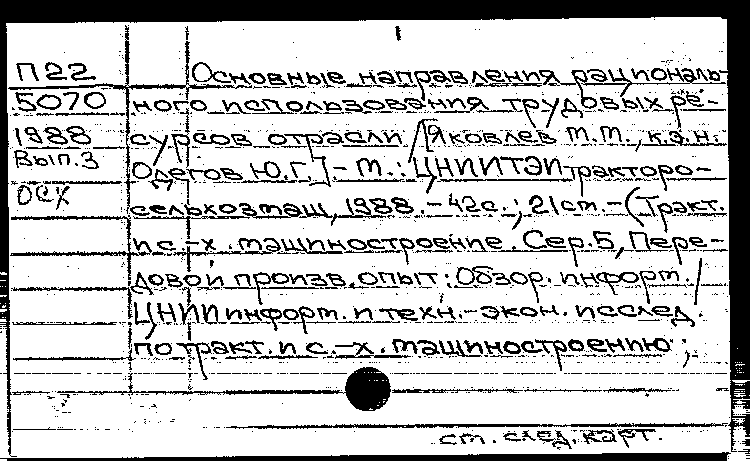 П22
5070
1988
Вып.3
ОСХ
Основные направления рациональ-
ного использования трудовых ре-
сурсов отрасли /[Яковлев Т.Т., к.э.н.
Одегов Ю.Г.] - М.: ЦНИИТЭИтракторо-
сельхозмаш, 1988. - 42с.; 21см. - (Тракт.
и с.-х. машиностроение. Сер.5, Пере-
довой произв. опыт: Обзор. информ. /
ЦНИИ информ. и техн.-экон. исслед.
по тракт. и с.-х. машиностроению;
см. след. карт.